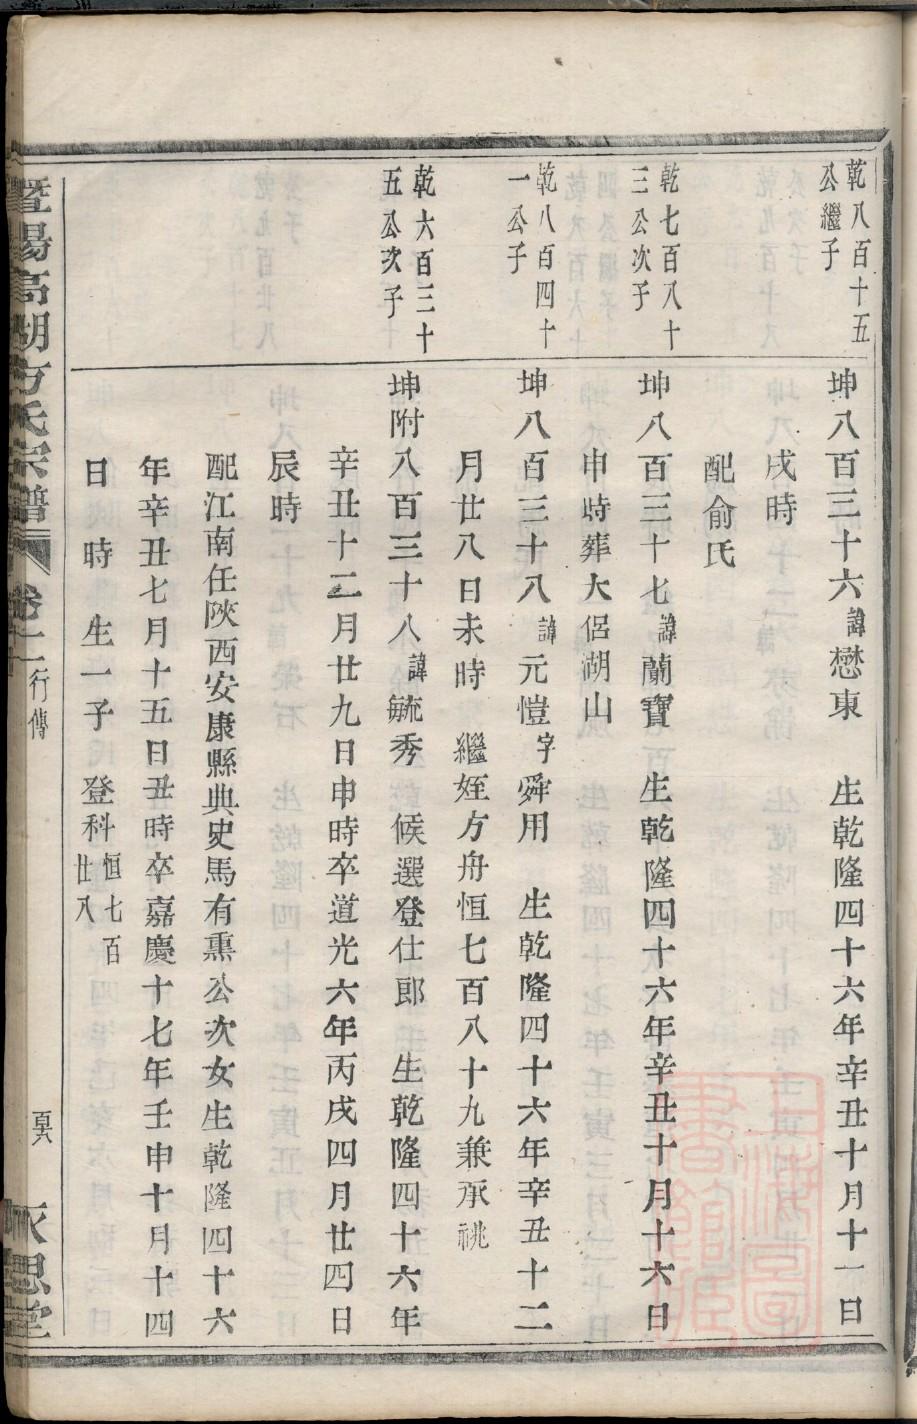 乾八百十五
公繼子
坤八百三十六諱懋東　生乾隆四十六年辛丑十月十一日
戌時
配俞氏
乾七百八十
三公次子
坤八百三十七諱蘭寶　生乾隆四十六年辛丑十月十六日
申時葬大侶湖山
乾八百四十
一公子
坤八百三十八諱元愷字舜用　生乾隆四十六年辛丑十二
月廿八日未時　繼姪方舟恒七百八十九兼承祧
乾六百三十
五公次子
坤附八百三十八諱毓秀　候選登仕郎　生乾隆四十六年
辛丑十二月廿九日申時卒道光六年丙戌四月廿四日
辰時
配江南任陝西安康縣典史馬有熏公次女生乾隆四十六
年辛丑七月十五日丑時卒嘉慶十七年壬申十月十四
日　時　生一子　登科恒七百
廿八
暨陽高湖方氏宗譜　卷十一行傳
永思堂